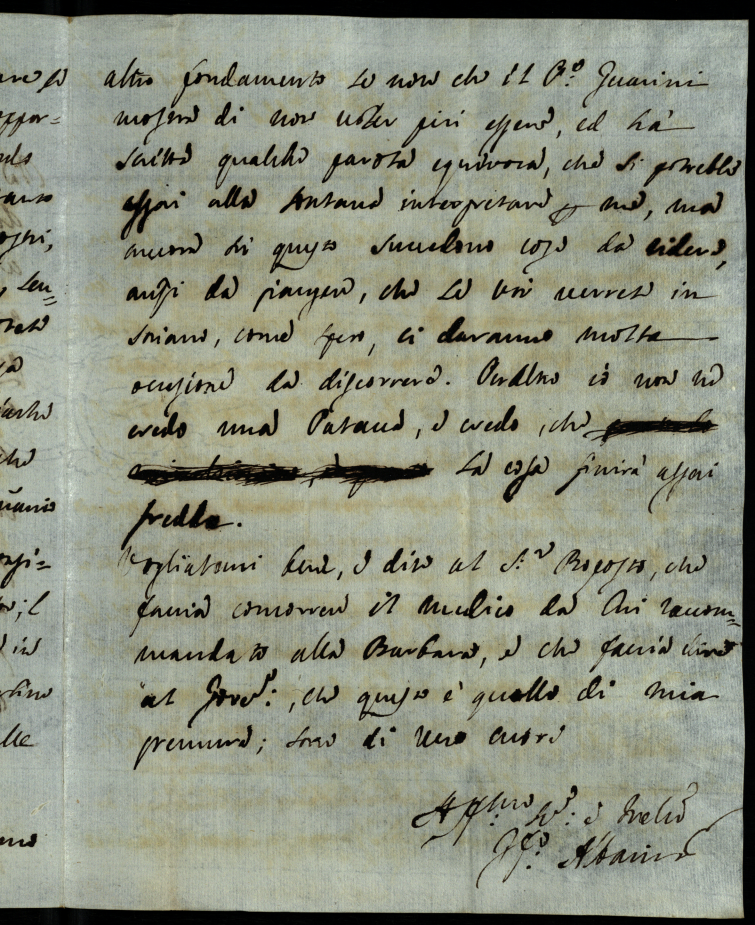 altro fondamento se non che il P.e Guarini
mostra di non voler più essere, ed hà
scritta qualche parola equivoca, che si potrebbe
assai alla lontana interpretare p me, ma
ancora di questo succedono cose da ridere,
anzi da piangere, che se voi verrete in
Soriano, come spero, ci daranno molta
occasione da discorrere. Peraltro io non ne
credo una Patacca, e credo, che
la cosa finirà assai
fredda.
Vogliatemi bene, e dite al S.r Rogosto, che
faccia concorrere il medico da lui raccom=
mandato alla Barbara, e che faccia dire
al Gov.re:, che questo è quello di mia
premura; sono di vero cuore
Aff.mo S.e: e Fratello
Albani